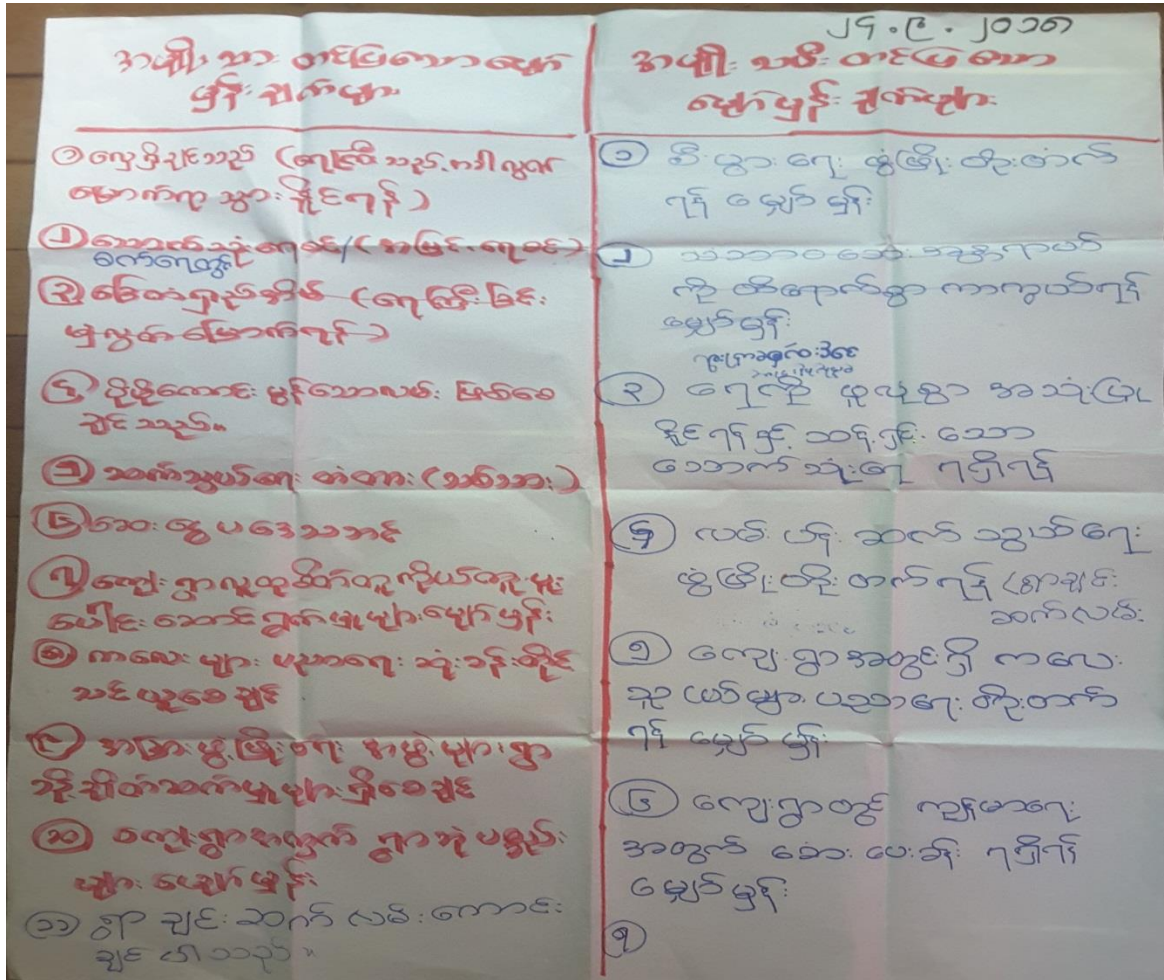 ၂၄.၉.၂၀၁၈
အမျိုးသား တင်ပြသောမျှော်
မှန်းချက်များ
၁ လှေရှိချင်သည် (ရေကြီးသည့်ကာလ
မြောက်ကူ သွားနိုင်ရန်)
၂ သောက်သုံးရေကန် / (အမြင့်ရေကန်)
စက်ရေတွင်း
၃ ခြေတံရှည်အိမ် (ရေကြီးခြင်း
မှလွတ်မြောက်ရန်)
၄ ပိုမိုကောင်းမွန်သောလမ်း ဖြစ်စေ
ချင်သည်။
၅ ဆက်သွယ်ရေး တံတား (သစ်သား)
၆ ဆေး မြို့ ပဒေသာပင်
၇ ကျေးရွာလူထုစိတ်တူကိုယ်တူ ပူး
ပေါင်းဆောင်ရွက်မှုများမျှော်မှန်း
၈ ကလေးများ ပညာရေး ဆုံးခန်းတိုင်
သင်ယူစေချင်
၉ အခြားဖွံ့ဖြိုးရေး အဖွဲ့များရွာ
သို့ ချိတ်ဆက်မှုများရှိစေချင်
၁၀ ကျေးရွာအတွက် ရွာသုံးပစ္စည်း
များ မျှော်မှန်း
၁၁ ရွာချင်းဆက် လမ်းကောင်း
ချင်ပါသည်။
အမျိုးသမီး တင်ပြသော
မျှော်မှန်းချက်များ
၁ စီးပွားရေး ဖွံ့ဖြိုးတိုးတက်
ရန် မျှော်မှန်း
၂ သဘာဝဘေး အန္တရာယ်
ကို ထိရောက်စွာ ကာကွယ်ရန်
မျှော်မှန်း
၃ ရေကို ဖူလုံစွာ အသုံးပြု
နိုင်ရန်နှင့် သန့်ရှင်းသော
သောက်သုံးရေ ရရှိရန်
၄ လမ်းပန်းဆက်သွယ်ရေး
ဖွံ့ဖြိုးတိုးတက်ရန် (ရွာချင်း
ဆက်လမ်း
၅ ကျေးရွာအတွင်းရှိ ကလေး
သူငယ်များ ပညာရေး တိုးတက်
ရန် မျှော်မှန်း
၆ ကျေးရွာတွင် ကျန်းမာရေး
အတွက် ဆေးပေးခန်း ရရှိရန်
မျှော်မှန်း
၇